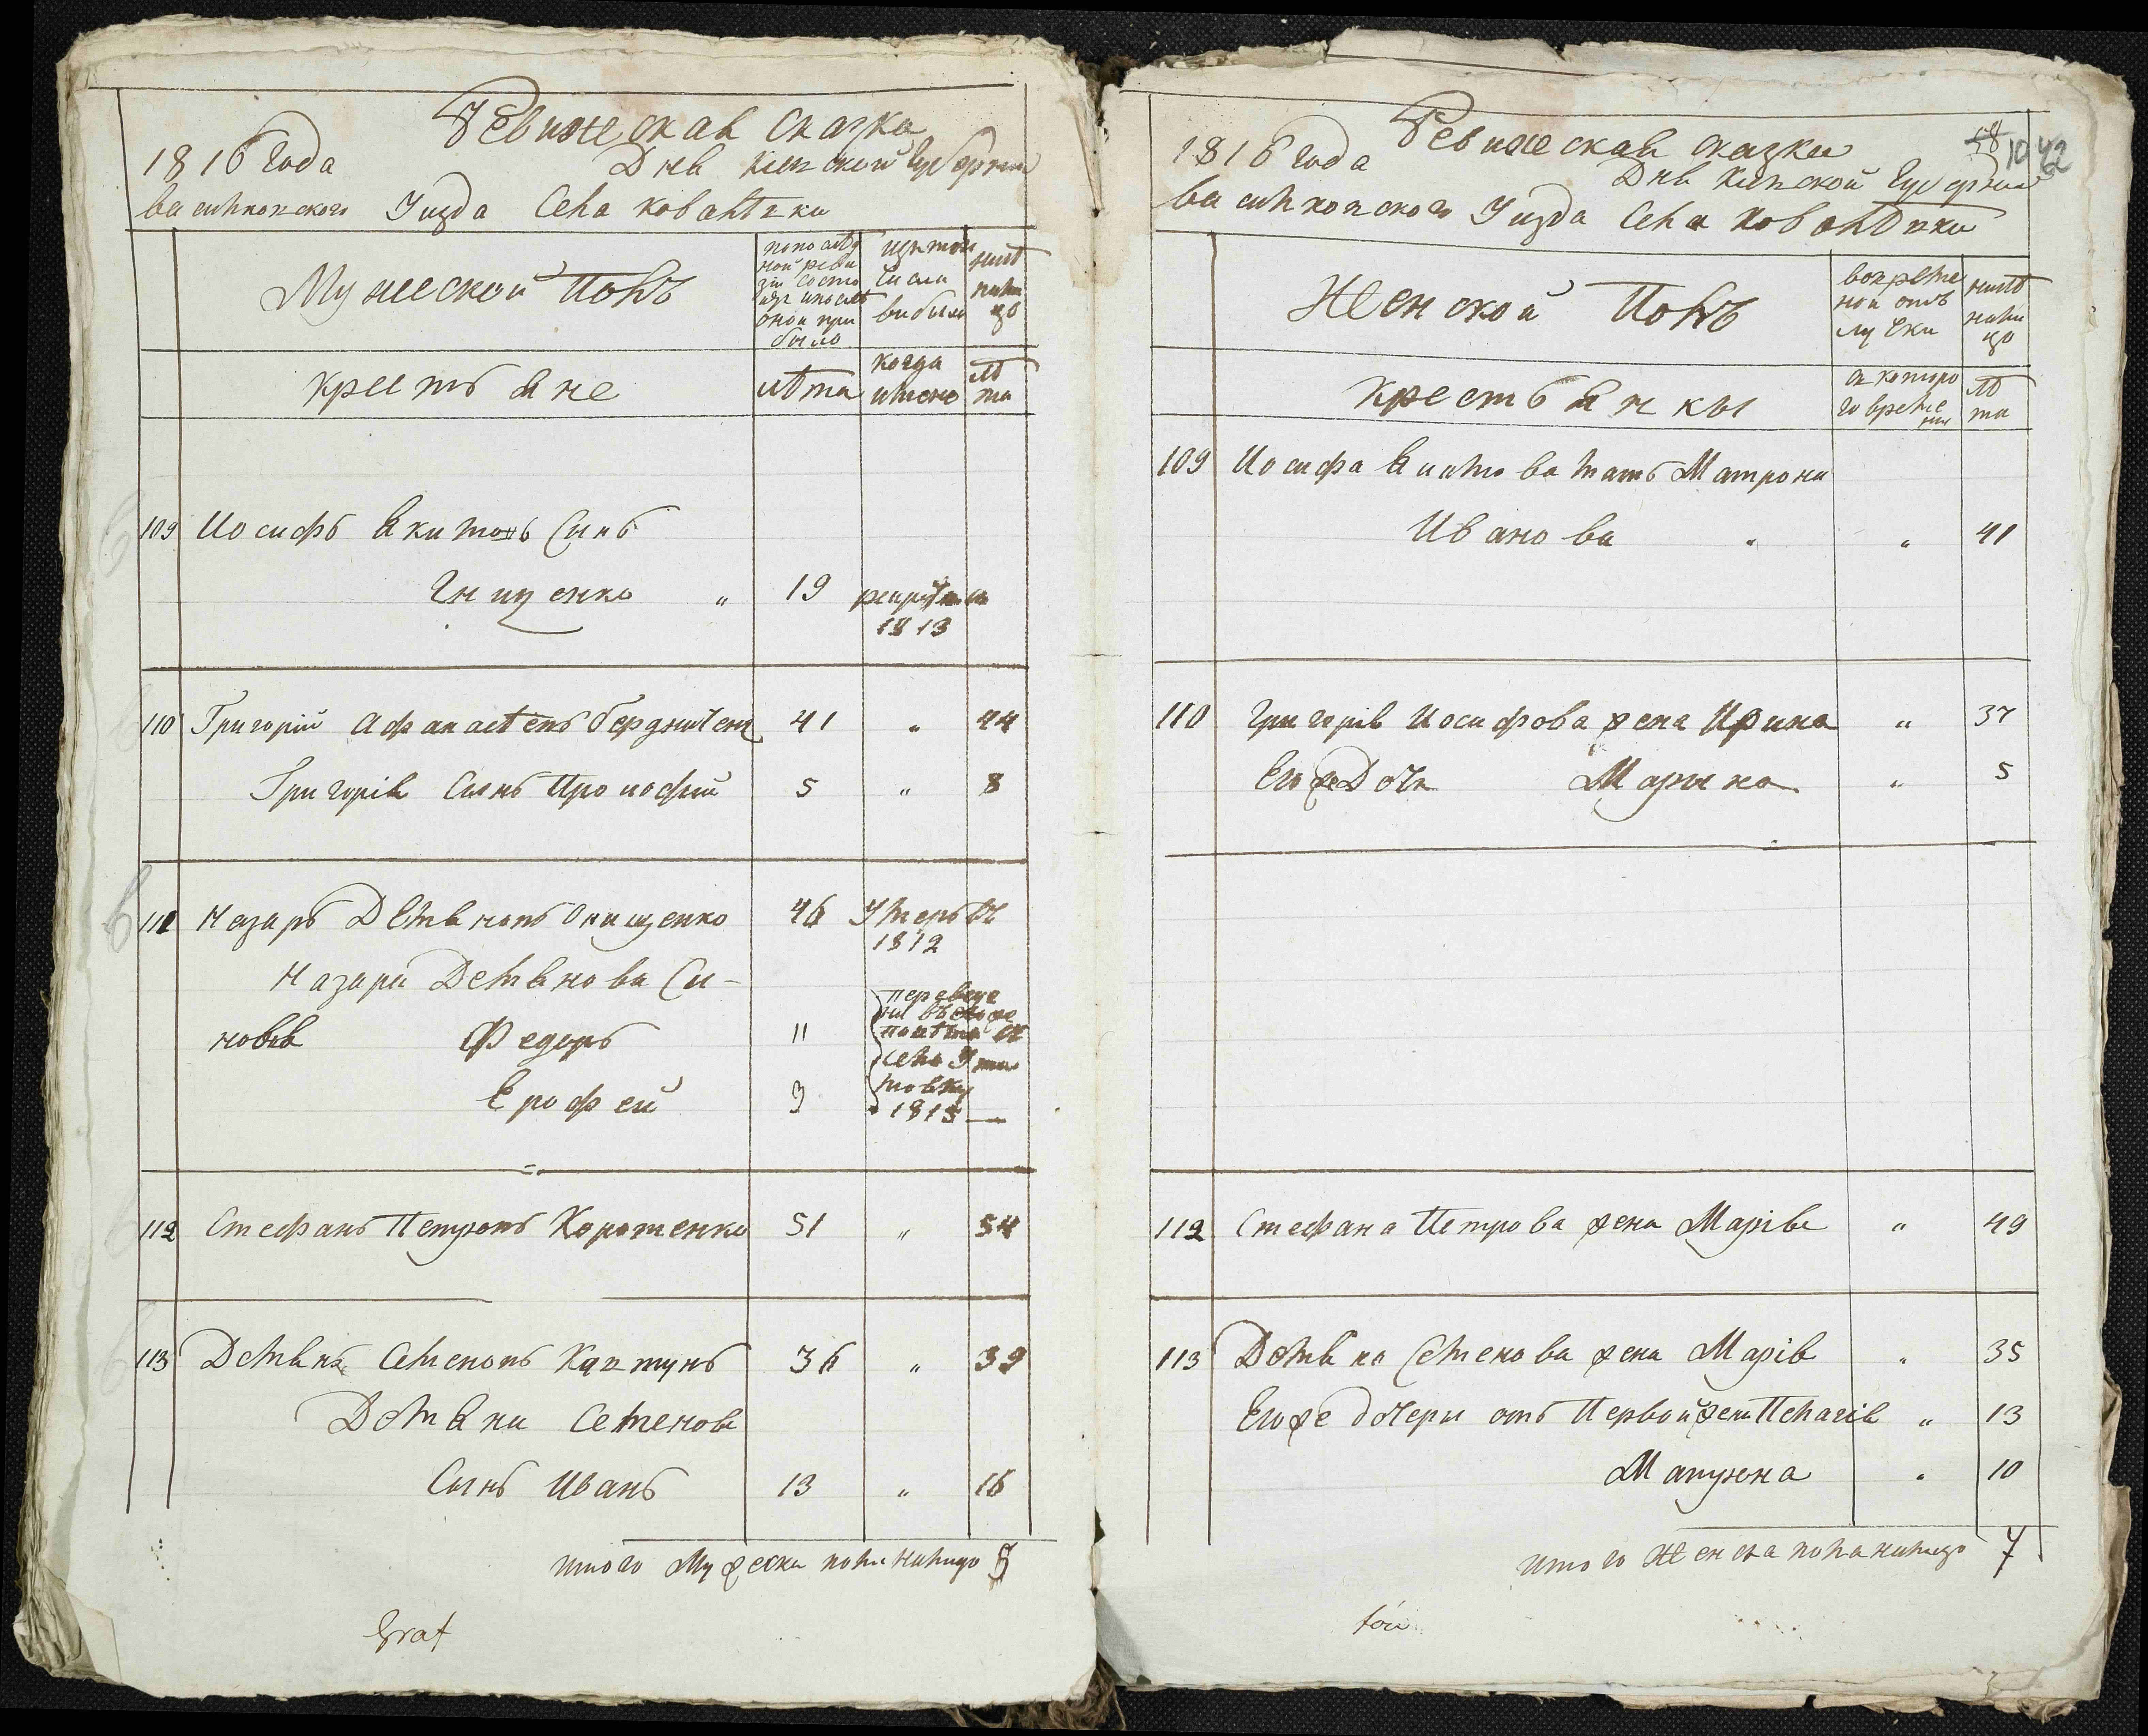 Ревижская сказка
1816 года Дня Киевской Губернии
васильковского Уизда Села ковалѣвки
Мужеской Полъ
по послѣд
ной реви
зіи состо
яло и после
оной при
было
изъ того
числа
выбыло
нинѣ
нали
цо
крестьяне
лѣта
когда
имено
лѣ
та
109 Иосифъ Якимовъ Синъ
Гнищенко " 19 рекрут
1813
110 Григорій Афанасіевъ бердниченк 41 " 44
Григорія Сынъ Прокофий 5 " 8
111 Назаръ Демяновъ Онищенко 46 Умеръ въ
1812
Назара Демянова Си-
новья Федоръ 11
Ерофей 9
переведе
ни въ
село
1815
112 Стефанъ Петровъ Коротенко 51 " 54
113 Демянъ Семеновъ Кавтунъ 36 " 39
Демяна Семенова
Сынъ Иванъ 13 " 16
итого Мужеска пола налицо 5
Graf
Ревижская сказка
58 10 42
1816 года Дня Киевской Губернии
васильковского Уизда Села Ковалѣвки
Женской Полъ
во време
ной отъ
лучки
нинѣ
нали
цо
крестьянкы
с которо
го време
ни
лѣ
та
109 Иосифа Якимова мать Матрона
Иванова " " 41
110 Григорія Иосифова жена Ирина " 37
Его же Дочь Марина " 5
112 Стефана Петрова жена Марія " 49
113 Демяна Семенова жена Марія " 35
Его же дочери отъ Первой жены Пелагія " 13
Матрона " 10
итого Женска пола налицо 7